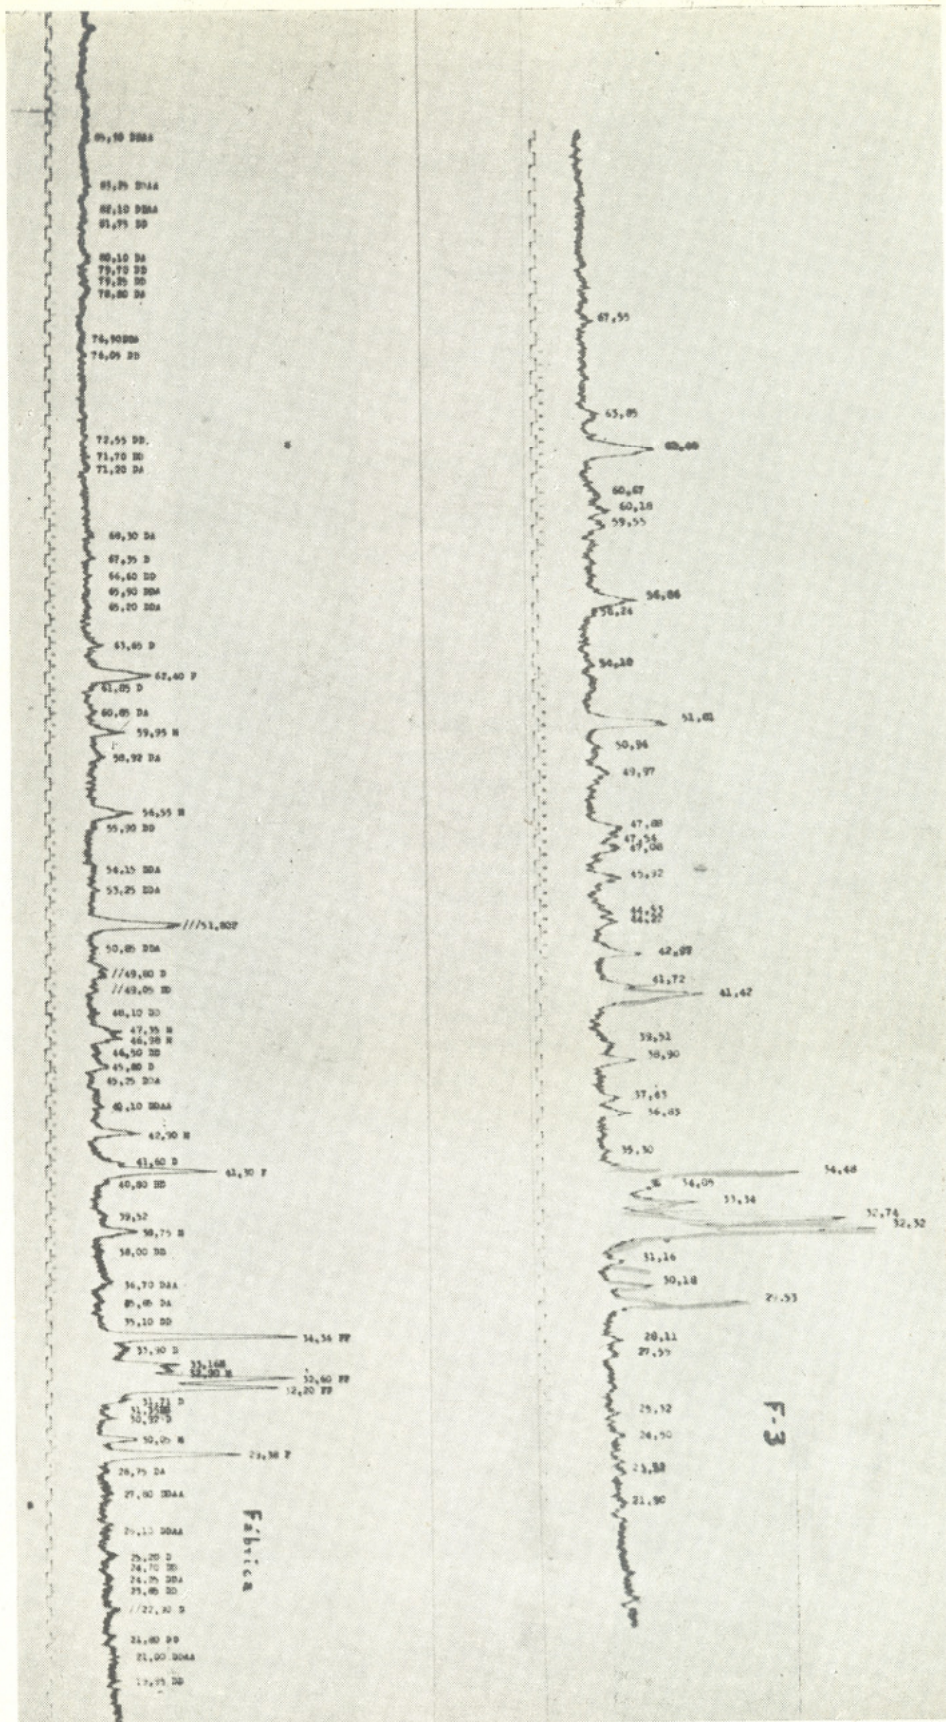 83,25 DDAA
82,10 DDAA
81,75 DD
80,10 DA
79,70 DD
79,25 DD
78,80 DA
76,05 DD
72,55 DD.
71,70 DD
71,20 DA
68,30 DA
67,35 D
66,60 DD
65,90 DDA
65,20 DDA
63,65 D
62,40 F
61,05 D
60,85 DA
59,95 M
58,92 DA
56,55 M
55,90 DD
54,15 DDA
53,25 DDA
///51,80F
50,85 DDA
//49,80 D
//49,05 DD
48,10 DD
47,35 M
46,98 M
46,50 DD
45,80 D
45,25 DDA
42,90 M
41,60 D
41,30 F
40,80 DD
39,52
38,75 M
38,00 DD
36,70 DAA
35,10 DD
34,36 FF
33,90 D
32,60 FF
32,20 FF
31,71 D
30,05 M
29,38 F
28,75 DA
27,80 DDAA
25,20 D
24,70 DD
23,85 DD
//22,30 D
21,80 DD
21,00 DDAA
19,95 DD
Fábrica
67,55
63,85
60,67
60,18
59,55
56,86
56,24
54,18
51,81
50,96
49,97
47,54
47,08
45,92
42,97
41,72
41,42
39,51
38,90
37,43
36,83
35,30
34,48
34,05
33,34
32,74
32,32
31,16
30,18
29,53
28,11
27,55
25,32
24,50
21,90
F-3